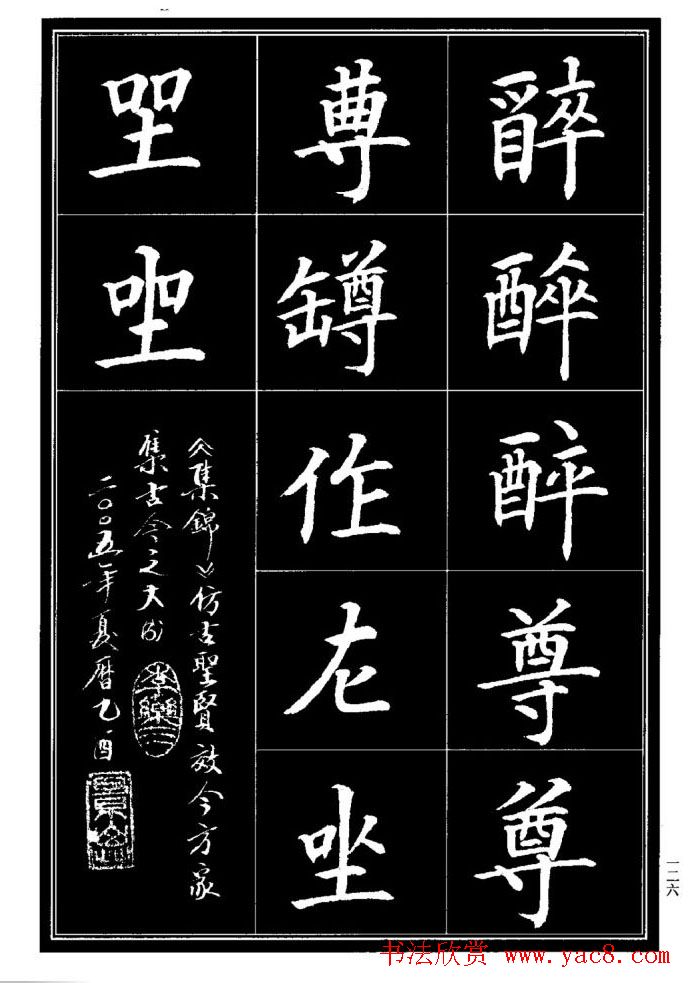 醉
醉
醉
尊
尊
尊
罇
作
左
坐
坐
坐
《集錦》仿古聖賢效今方家
集古今之大成
二〇〇五年夏曆乙酉
一二六
书法欣赏 www.yac8.com